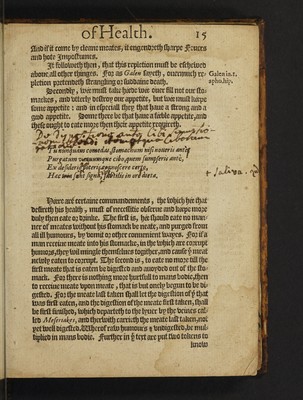 of Health. 15
And if it come by cleane meates, it engendreth sharpe Feuers
and hote Impostumes.
It followeth then, that this repletion must be eschewed
aboue all other thinges. For as Galen sayeth, ouermuch re-
pletion pretendeth strangling or suddaine death.
Galen in.1.
apho.hip.
Secondly, wee must take heede wee ouer fill not our sto-
mackes, and vtterly destroy our appetite, but wee must keepe
some appetite: and in especiall they that haue a strong and a
good appetite. Some there be that haue a feeble appetite, and
these ought to eate more then their appetite requireth.
Tu nunquam comedas, stomachum nisi noueris antè
Purgatum vacuumque cibo, quem sumpseris antè,
Ex desiderio poteris cognoscere certo,
Hæc sunt signa, subtilis in ore diæta.
Here are certaine commaundements, the which hee that
desireth his health, must of necessitie obserue and keepe more
duly then eate or drinke. The first is, hee should eate no man-
ner of meates without his stomack be neate, and purged from
all ill humours, by vomit or other conuenient wayes. For if a
man receiue meate into his stomacke, in the which are corrupt
humors, they wil mingle themselues togither, and cause the meat
newly eaten to corrupt. The second is, to eate no more till the
first meate that is eaten be digested and auoyded out of the sto-
mack. For there is nothing more hurtfull to mans bodie, then
to receiue meate vpon meate, that is but onely begun to be di-
gested. For the meate last taken shall let the digestion of that
was first eaten, and the digestion of the meate first taken, shall
be first finished, which departeth to the lyuer by the veines cal-
led Meseriakes, and therwith carrieth the meate last taken, not
yet well digested. Wherof raw humours & vndigested, be mul-
tiplied in mans bodie. Further in the text are put two tokens to
know